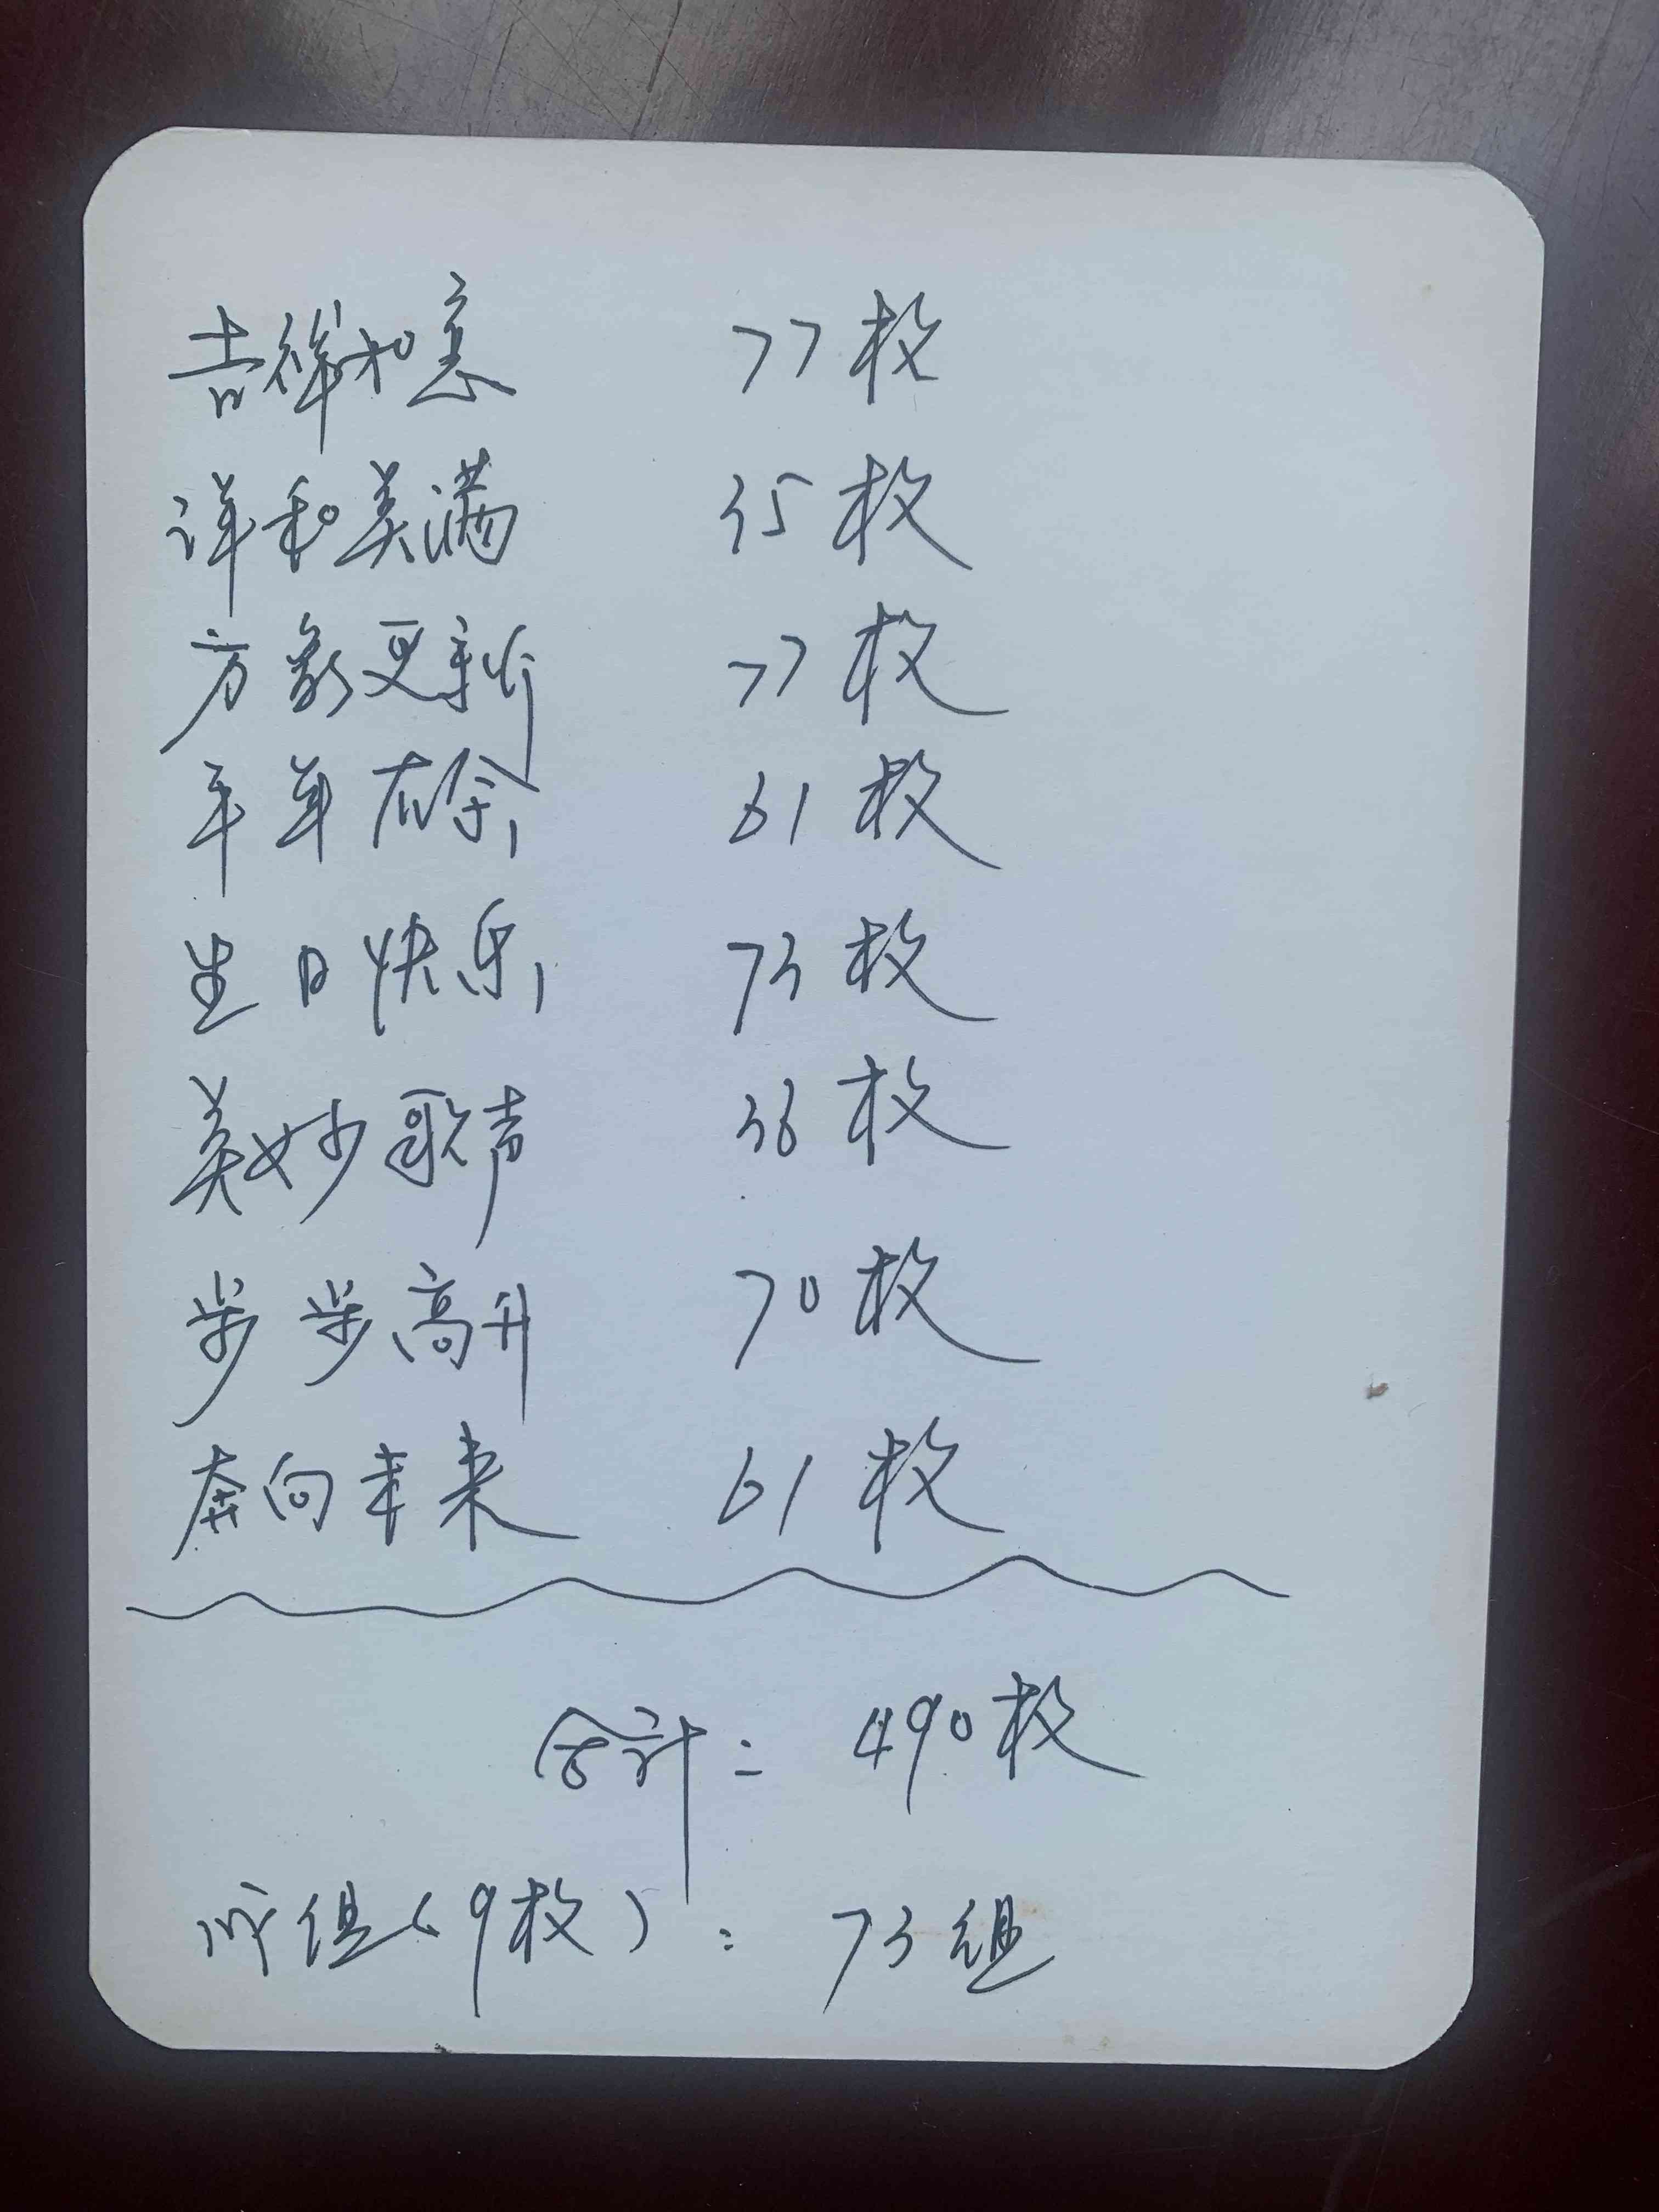 吉祥如意 77枚
祥和美满 35枚
万象更新 77枚
年年有余 61枚
生日快乐 73枚
美妙歌声 36枚
步步高升 70枚
奔向未来 61枚
合计: 490枚
组(9枚): 73组